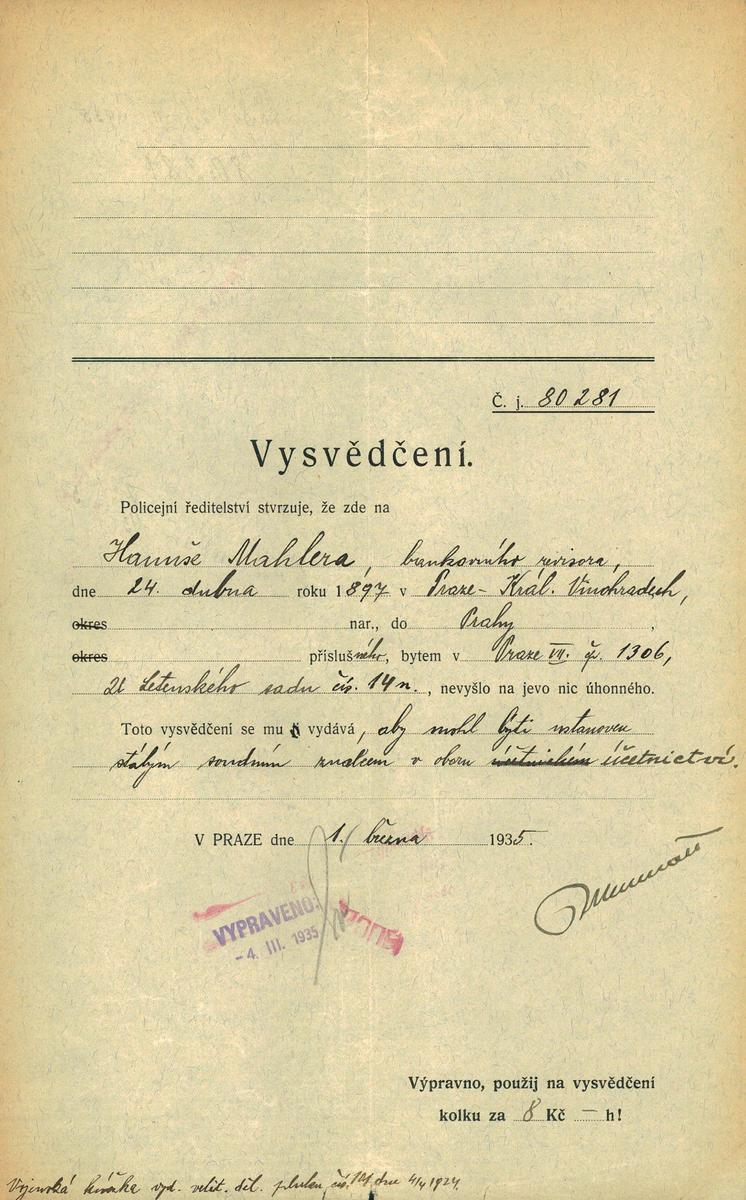 Č. j. 80281
Vysvědčení.
Policejní ředitelství stvrzuje, že zde na
Hanuše Mahlera, bankovního revisora,
dne 24. dubna roku 1897 v Praze - Král. Vinohradech,
okres nar., do Prahy,
okres příslušného, bytem v Praze VII. čp. 1306,
U Letenského sadu čís. 14 n., nevyšlo na jevo nic úhonného.
Toto vysvědčení se mu vydává, aby mohl býti ustanoven
stálým soudním znalcem v oboru účetnickém účetnictví.
V PRAZE dne 1. března 1935.
VYPRAVENO:
-4. III. 1935
Výpravno, použij na vysvědčení
kolku za 8 Kč — h!
Vojenská knížka vyd. velit. děl. pluku čís. 101 dne 4/4 1924.